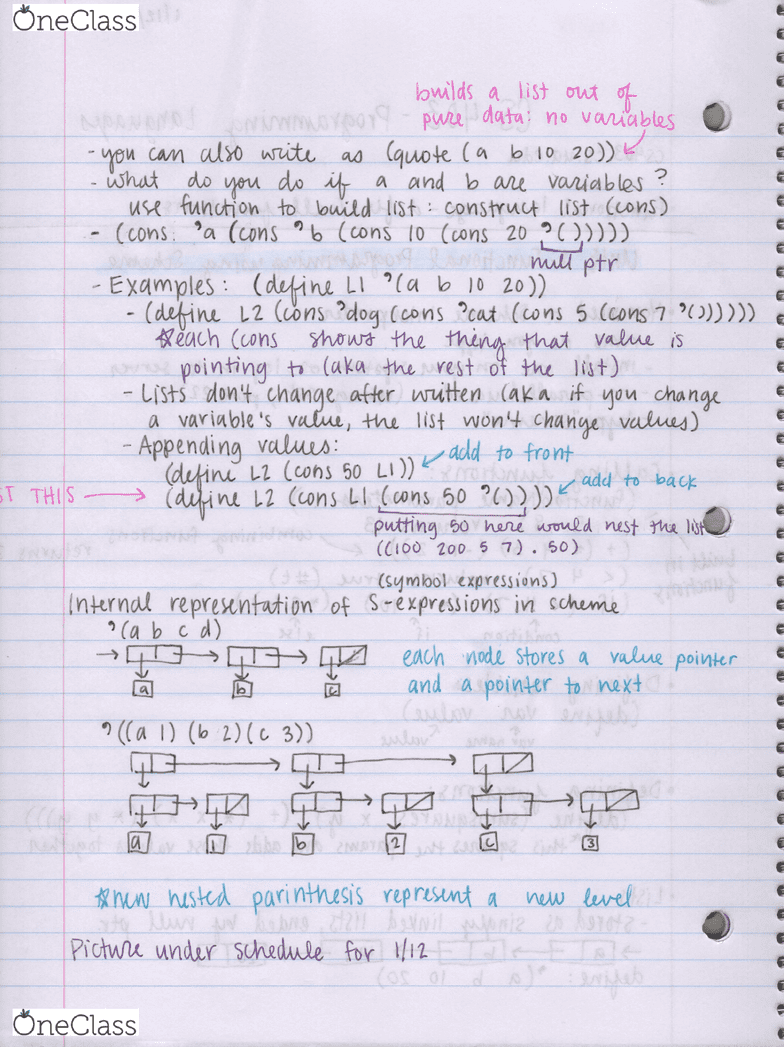 OneClass
builds a list out of
pure data: no variables
- you can also write as (quote (a b 10 20))
- what do you do if a and b are variables?
use function to build list: construct list (cons)
- (cons: 'a (cons 'b (cons 10 (cons 20 '()))))
null ptr
- Examples: (define L1 '(a b 10 20))
- (define L2 (cons 'dog (cons 'cat (cons 5 (cons 7 '())))))
☆each (cons shows the thing that value is
pointing to (aka the rest of the list)
- Lists don't change after written (aka if you change
a variable's value, the list won't change values)
- Appending values:
add to front
(define L2 (cons 50 L1))
add to back
ST THIS
(define L2 (cons L1 (cons 50 '())))
putting 50 here would nest the list
((100 200 5 7) . 50)
(symbol expressions)
Internal representation of S-expressions in scheme
'(a b c d)
each node stores a value pointer
a b c
and a pointer to next
'((a 1) (b 2) (c 3))
a 1 b 2 c 3
☆new nested parinthesis represent a new level
Picture under schedule for 1/12
OneClass